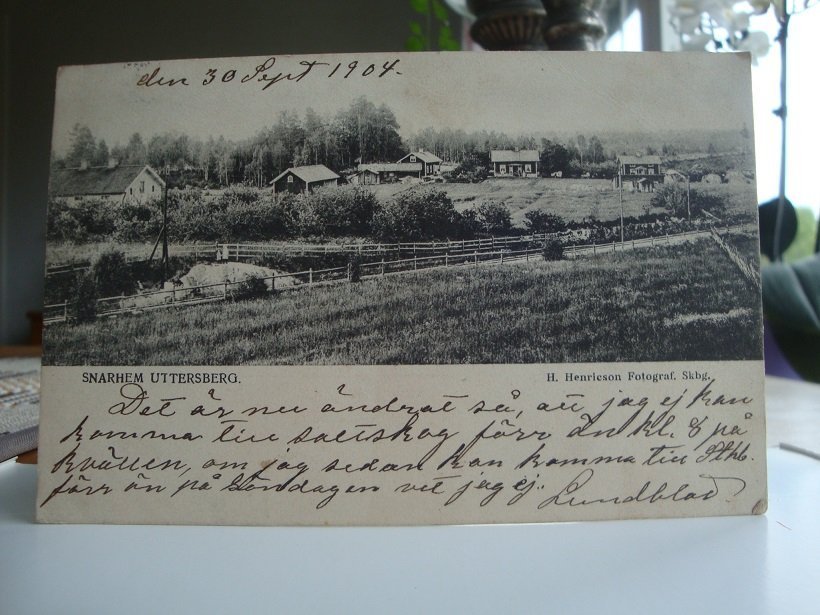 den 30 Sept 1904.
SNARHEM UTTERSBERG.
H. Henricson Fotograf. Skbg.
Det är nu ändrat så, att jag ej kan
komma till saltskog förr än kl. 8 på
kvällen, om jag sedan kan komma till Sthlb.
förr än på Söndagen vet jag ej.
Lundblad